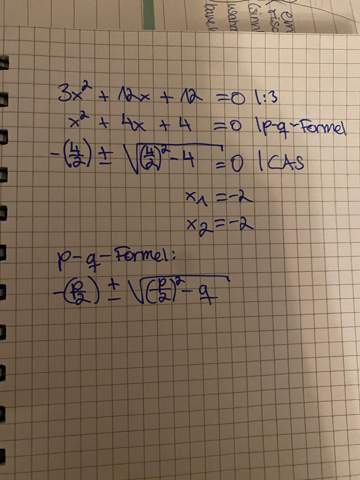 3x² + 12x + 12 = 0 |:3
x² + 4x + 4 = 0 | p-q-Formel
-(4/2) ± √((4/2)² - 4) = 0 | CAS
x₁ = -2
x₂ = -2
p-q-Formel:
-(p/2) ± √((p/2)² - q)